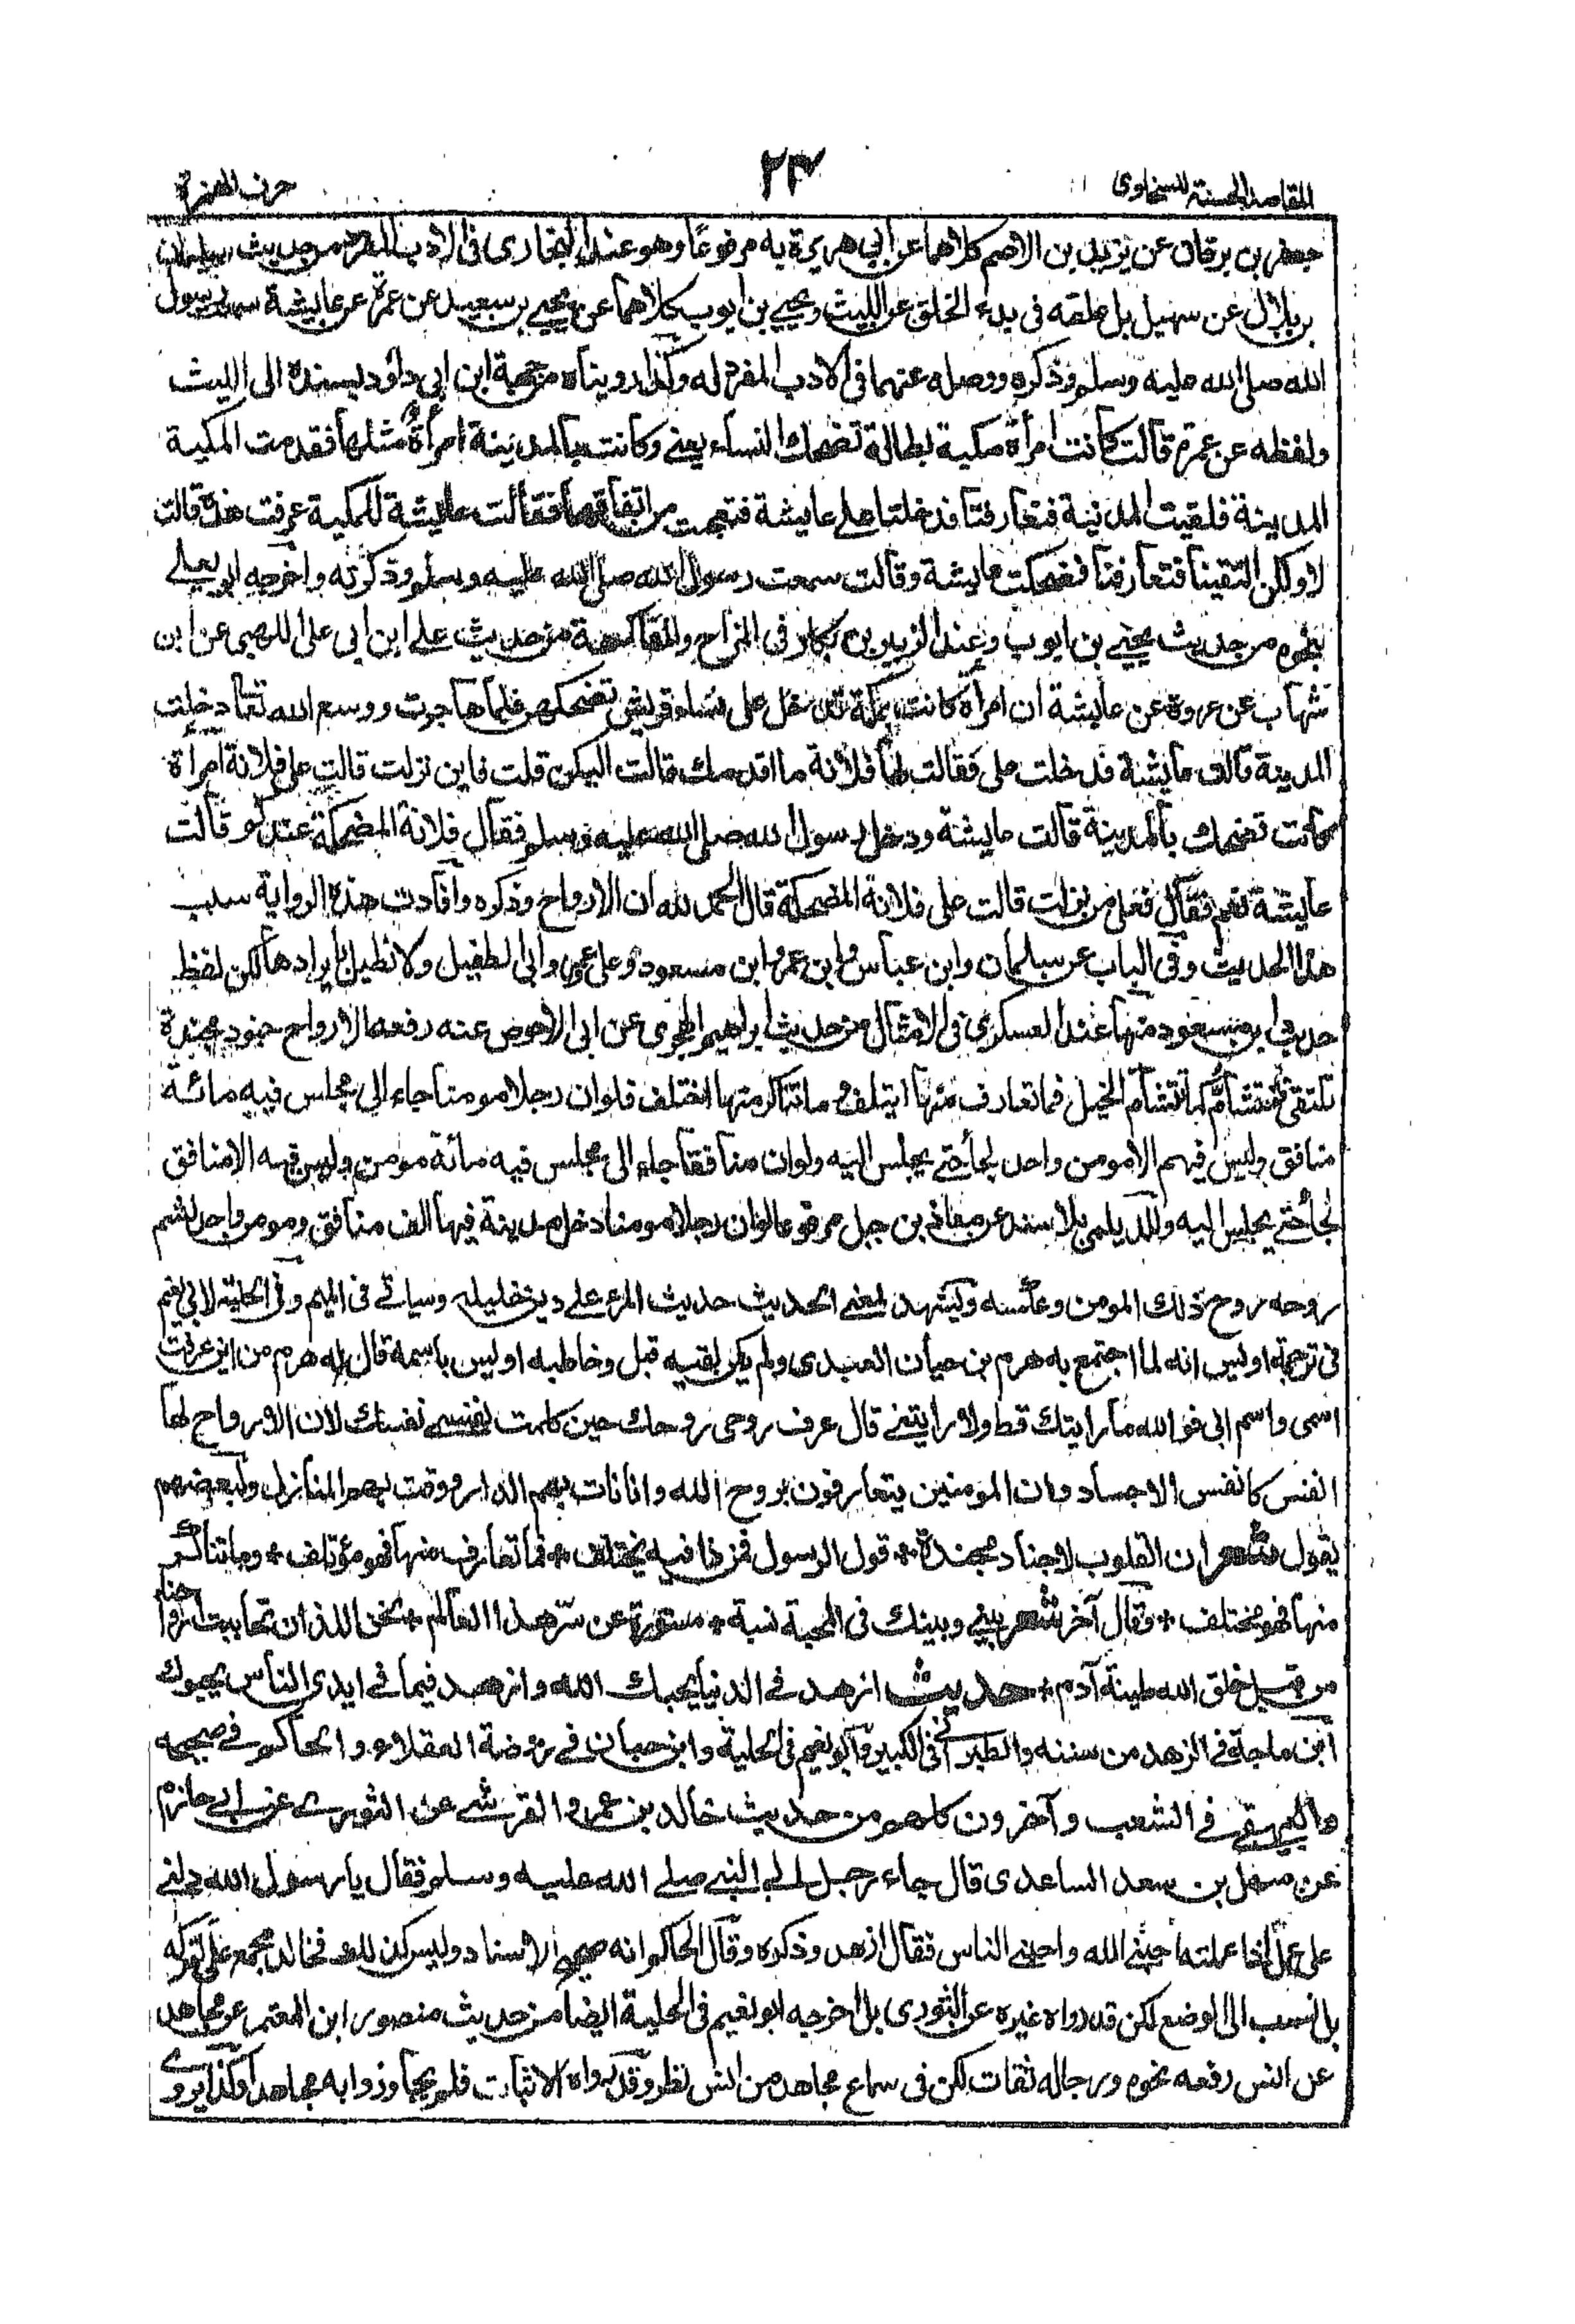 المقاصد الحسنة للسخاوي
٢٣
حرف الهمزة
جعفر بن برقان عن يزيد بن الاصم كلاهما عن ابي هريرة به مرفوعًا وهو عند البخاري في الادب المفرد من حديث سليمان
بن بلال عن سهيل بل علقه في بدء الخلق عن الليث ويحيى بن ايوب كلاهما عن يحيى بن سعيد عن عمرة عن عايشة سمعت رسول
الله صلى الله عليه وسلم وذكره ووصله عنهما في الادب المفرد له وكذا رويناه من جهة ابن ابي داؤد يسنده الى الليث
ولفظه عن عمرة قالت كانت امرأة مكية بطالة تضحك النساء يعني وكانت بالمدينة امرأة مثلها فقدمت المكية
المدينة فلقيت المدنية فتعارفتا فدخلتا على عايشة فتعجبت من اتفاقهما فقالت عايشة للمكية عرفت هذه قالت
لا ولكن التقينا فتعارفنا فضحكت عايشة وقالت سمعت رسول الله صلى الله عليه وسلم وذكرته واخرجه ابو يعلى
بنحوه من حديث يحيى بن ايوب وعند الزبير بن بكار في المزاح والفاكهة من حديث علي ابن ابي علي اللهبي عن ابن
شهاب عن عروة عن عايشة ان امرأة كانت بمكة تدخل على نساء قريش تضحكهن فلما هاجرت ووسع الله تعا دخلت
المدينة قالت عايشة فدخلت علي فقالت لها فلانة ما اقدمك قالت اليكن قلت فاين نزلت قالت على فلانة امرأة
كانت تضحك بالمدينة قالت عايشة ودخل رسول الله صلى الله عليه وسلم فقال فلانة المضحكة عندكم قالت
عايشة نعم فقال فعلى من نزلت قالت على فلانة المضحكة قال الحمد لله ان الارواح وذكره وافادت هذه الرواية سبب
هذا الحديث وفي الباب عن سلمان وابن عباس وابن عمر وابن مسعود وعلي وابي الطفيل ولا نطيل بايرادها لكن لفظ
حديث ابن مسعود منها عند العسكري في الامثال من حديث ابراهيم الهجري عن ابي الاحوص عنه رفعه الارواح جنود مجندة
تلتقي فتشام كما تشام الخيل فما تعارف منها ايتلف وما تناكر منها اختلف فلو ان رجلا مومنا جاء الى مجلس فيه مائة
منافق وليس فيهم الا مومن واحد لجاء حتى يجلس اليه ولو ان منافقا جاء الى مجلس فيه مائة مومن وليس فيه الا منافق
لجاء حتى يجلس اليه وللديلمي بلا سند عن معاذ بن جبل مرفوعا لو ان رجلا مومنا دخل مدينة فيها الف منافق ومومن واحد لشم
روحه روح ذلك المومن وعكسه ويشهد لمعنى الحديث حديث المرء على دين خليله وسياتي في الميم وفي الحلية لابي نعيم
في ترجمة اويس انه لما اجتمع به هرم بن حيان العبدي ولم يكن لقيه قبل وخاطبه اويس باسمه قال له هرم من اين عرفت
اسمي واسم ابي فوالله ما رايتك قط ولا رايتني قال عرف روحي روحك حين كلمت نفسي نفسك لان الارواح لها
انفس كانفس الاجساد وان المومنين يتعارفون بروح الله وان نات بهم الدار وقت بهم المنازل ولبعضهم
يقول شعر ان القلوب لاجناد مجندة * قول الرسول فمن ذا فيه يختلف * فما تعارف منها فهو مؤتلف * وما تناكر
منها فهو مختلف * وقال آخر شعر بيني وبينك في المحبة نسبة * مستورة عن سر هذا العالم * نحن اللذان تحاببت ارواحنا
من قبل خلق الله طينة آدم * حديث ازهد في الدنيا يحبك الله وازهد فيما في ايدي الناس يحبوك
ابن ماجة في الزهد من سننه والطبراني في الكبير وابو نعيم في الحلية وابن حبان في روضة العقلاء والحاكم في صحيحه
والبيهقي في الشعب وآخرون كلهم من حديث خالد بن عمرو القرشي عن الثوري عن ابي حازم
عن سهل بن سعد الساعدي قال جاء رجل الى النبي صلى الله عليه وسلم فقال يا رسول الله دلني
على عمل اذا عملته احبني الله واحبني الناس فقال ازهد وذكره وقال الحاكم انه صحيح الاسناد وليس كذلك فخالد مجمع على تركه
بل نسب الى الوضع لكن قد رواه غيره عن الثوري بل اخرجه ابو نعيم في الحلية ايضا من حديث منصور ابن المعتمر عن مجاهد
عن انس رفعه نحوه ورجاله ثقات لكن في سماع مجاهد من انس نظر وقد رواه الاثبات فلم يجاوزوا به مجاهدا وكذا يروى